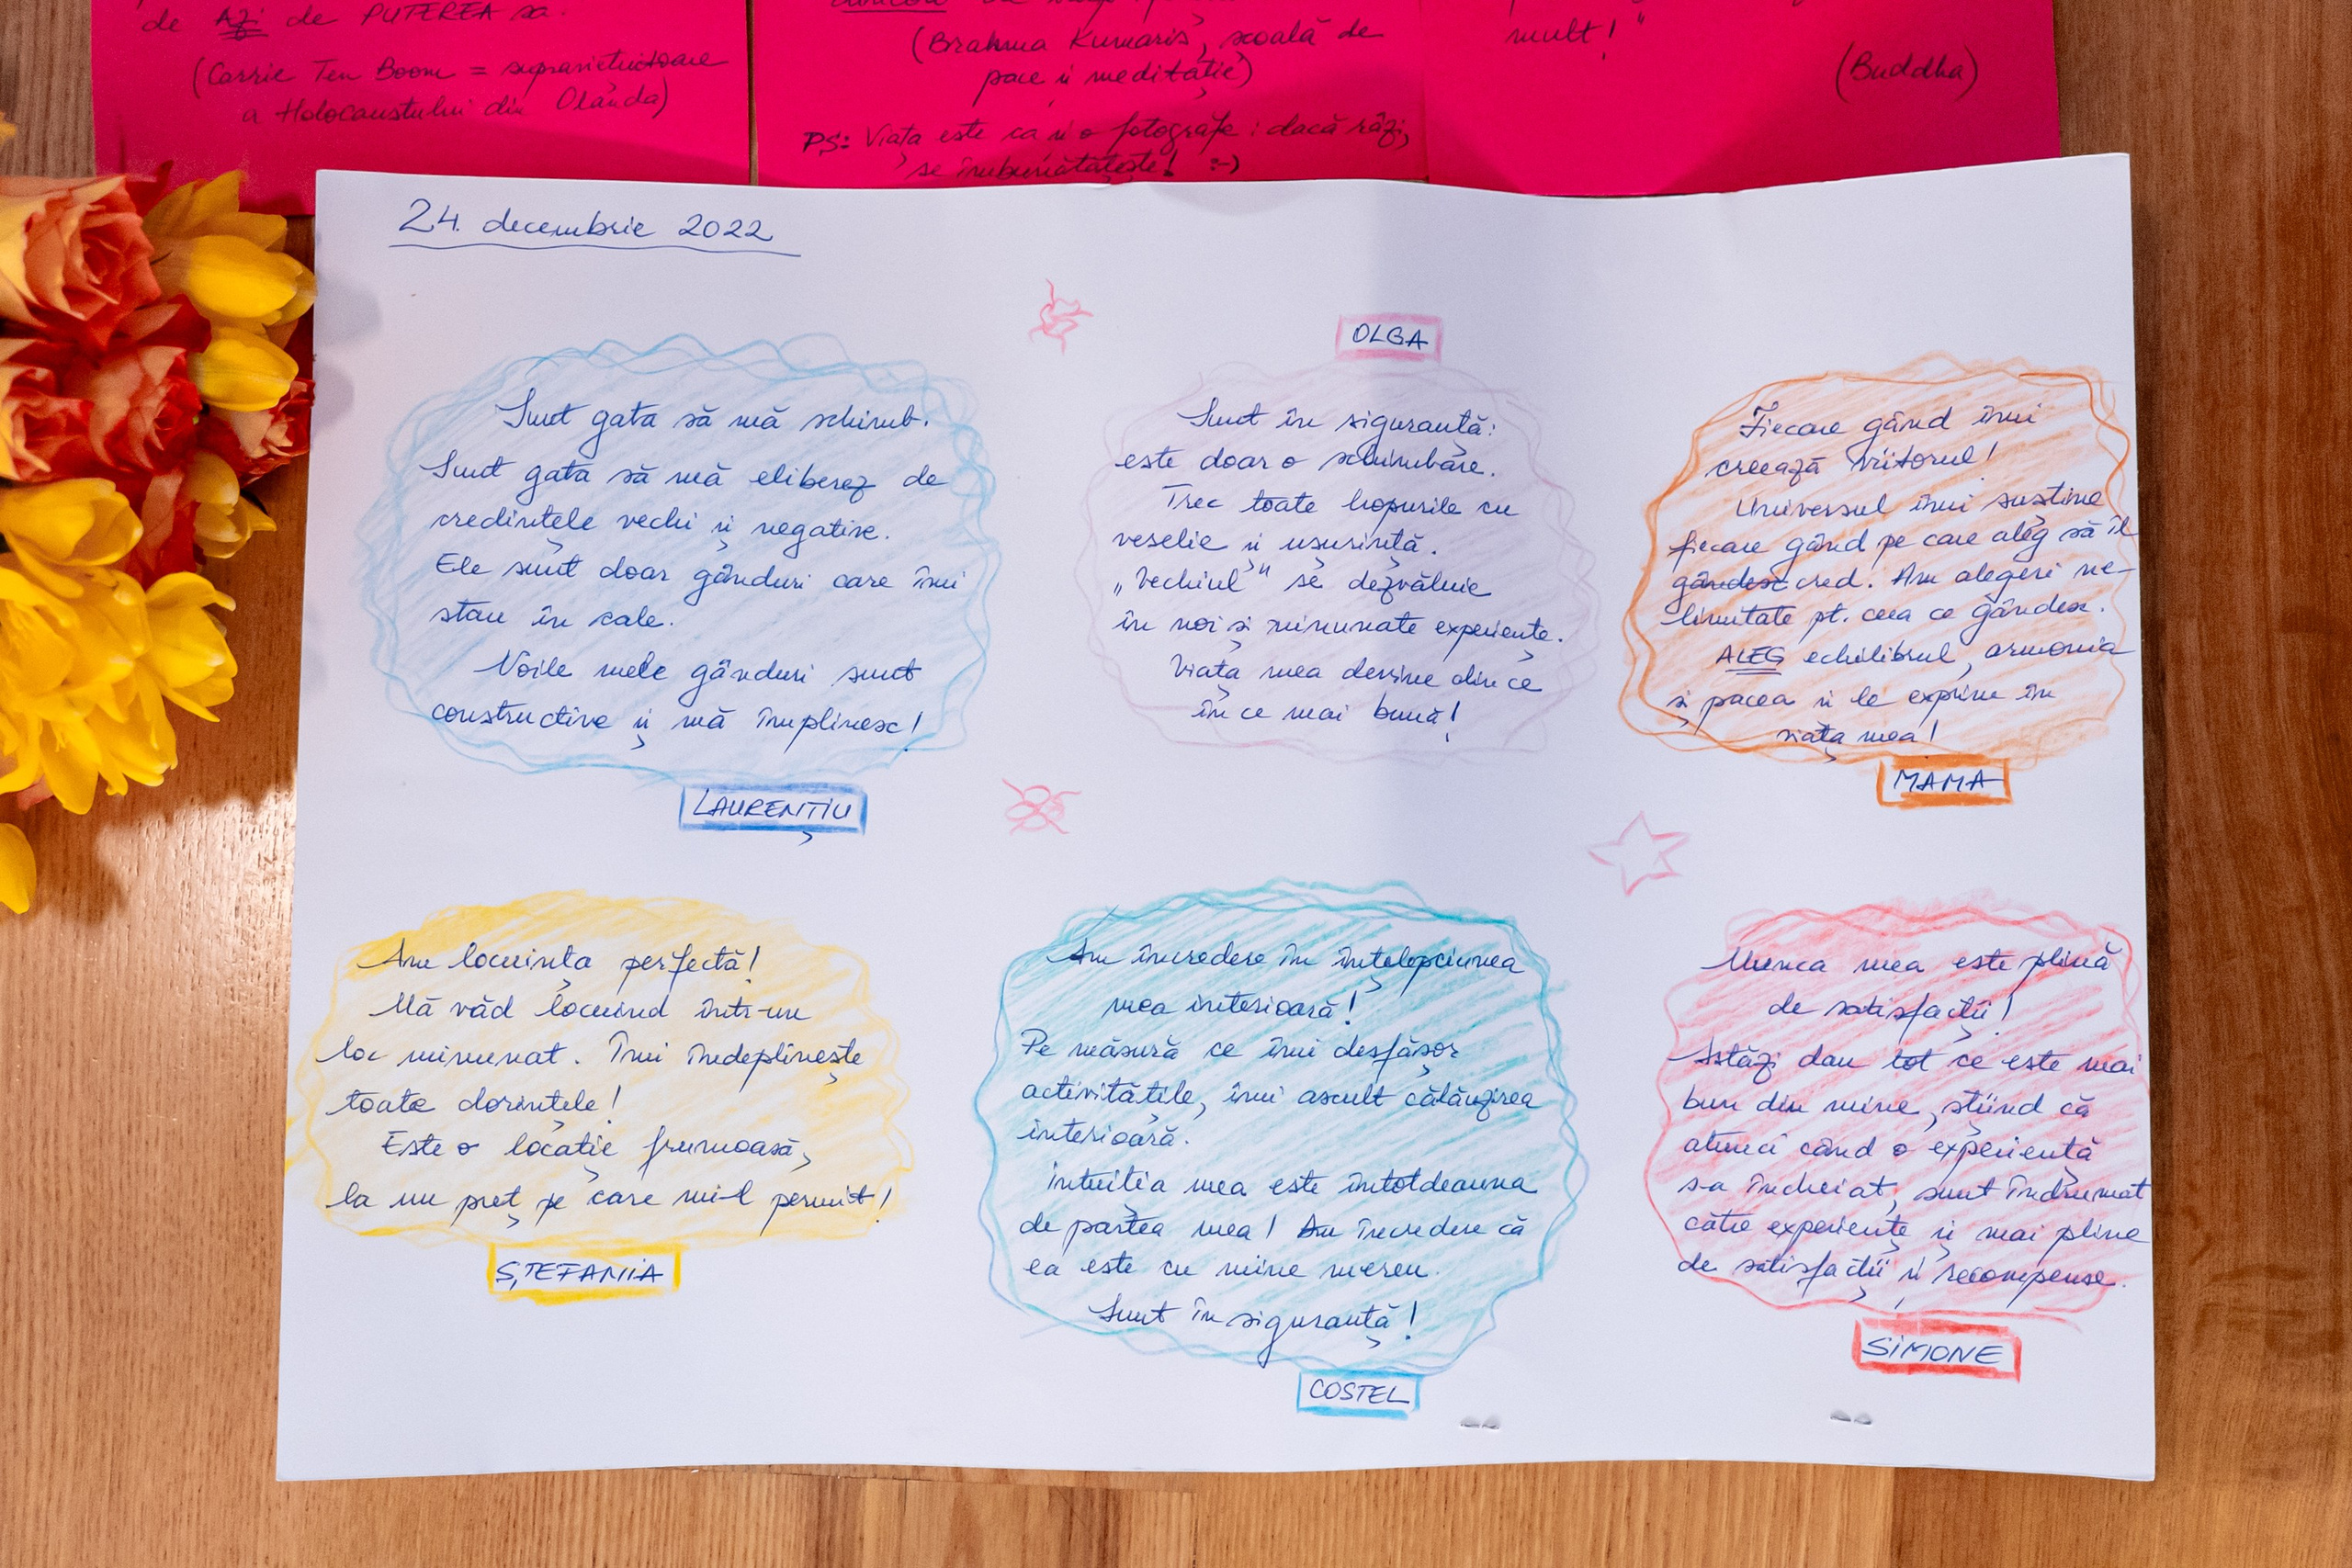 de AZI de PUTEREA sa.
(Corrie Ten Boom = supraviețuitoare
a Holocaustului din Olanda)
(Brahma Kumaris, școală de
pace și meditație)
PS: Viața este ca și o fotografie: dacă râzi,
se îmbunătățește! :-)
mult!"
(Buddha)
24. decembrie 2022
Sunt gata să mă schimb.
Sunt gata să mă eliberez de
credințele vechi și negative.
Ele sunt doar gânduri care îmi
stau în cale.
Noile mele gânduri sunt
constructive și mă împlinesc!
LAURENȚIU
OLGA
Sunt în siguranță:
este doar o schimbare.
Trec toate hopurile cu
veselie și ușurință.
„Vechiul" se dezvăluie
în noi și minunate experiențe.
Viața mea devine din ce
în ce mai bună!
Fiecare gând îmi
creează viitorul!
Universul îmi susține
fiecare gând pe care aleg să îl
gândesc cred. Am alegeri ne-
limitate pt. ceea ce gândesc.
ALEG echilibrul, armonia
și pacea și le exprim în
viața mea!
MAMA
Am locuința perfectă!
Mă văd locuind într-un
loc minunat. Îmi îndeplinește
toate dorințele!
Este o locație frumoasă,
la un preț pe care mi-l permit!
ȘTEFANIA
Am încredere în înțelepciunea
mea interioară!
Pe măsură ce îmi desfășor
activitățile, îmi ascult călăuzirea
interioară.
Intuiția mea este întotdeauna
de partea mea! Am încredere că
ea este cu mine mereu.
Sunt în siguranță!
COSTEL
Munca mea este plină
de satisfacții!
Astăzi dau tot ce este mai
bun din mine, știind că
atunci când o experiență
s-a încheiat, sunt îndrumat
către experiențe și mai pline
de satisfacții și recompense.
SIMONE